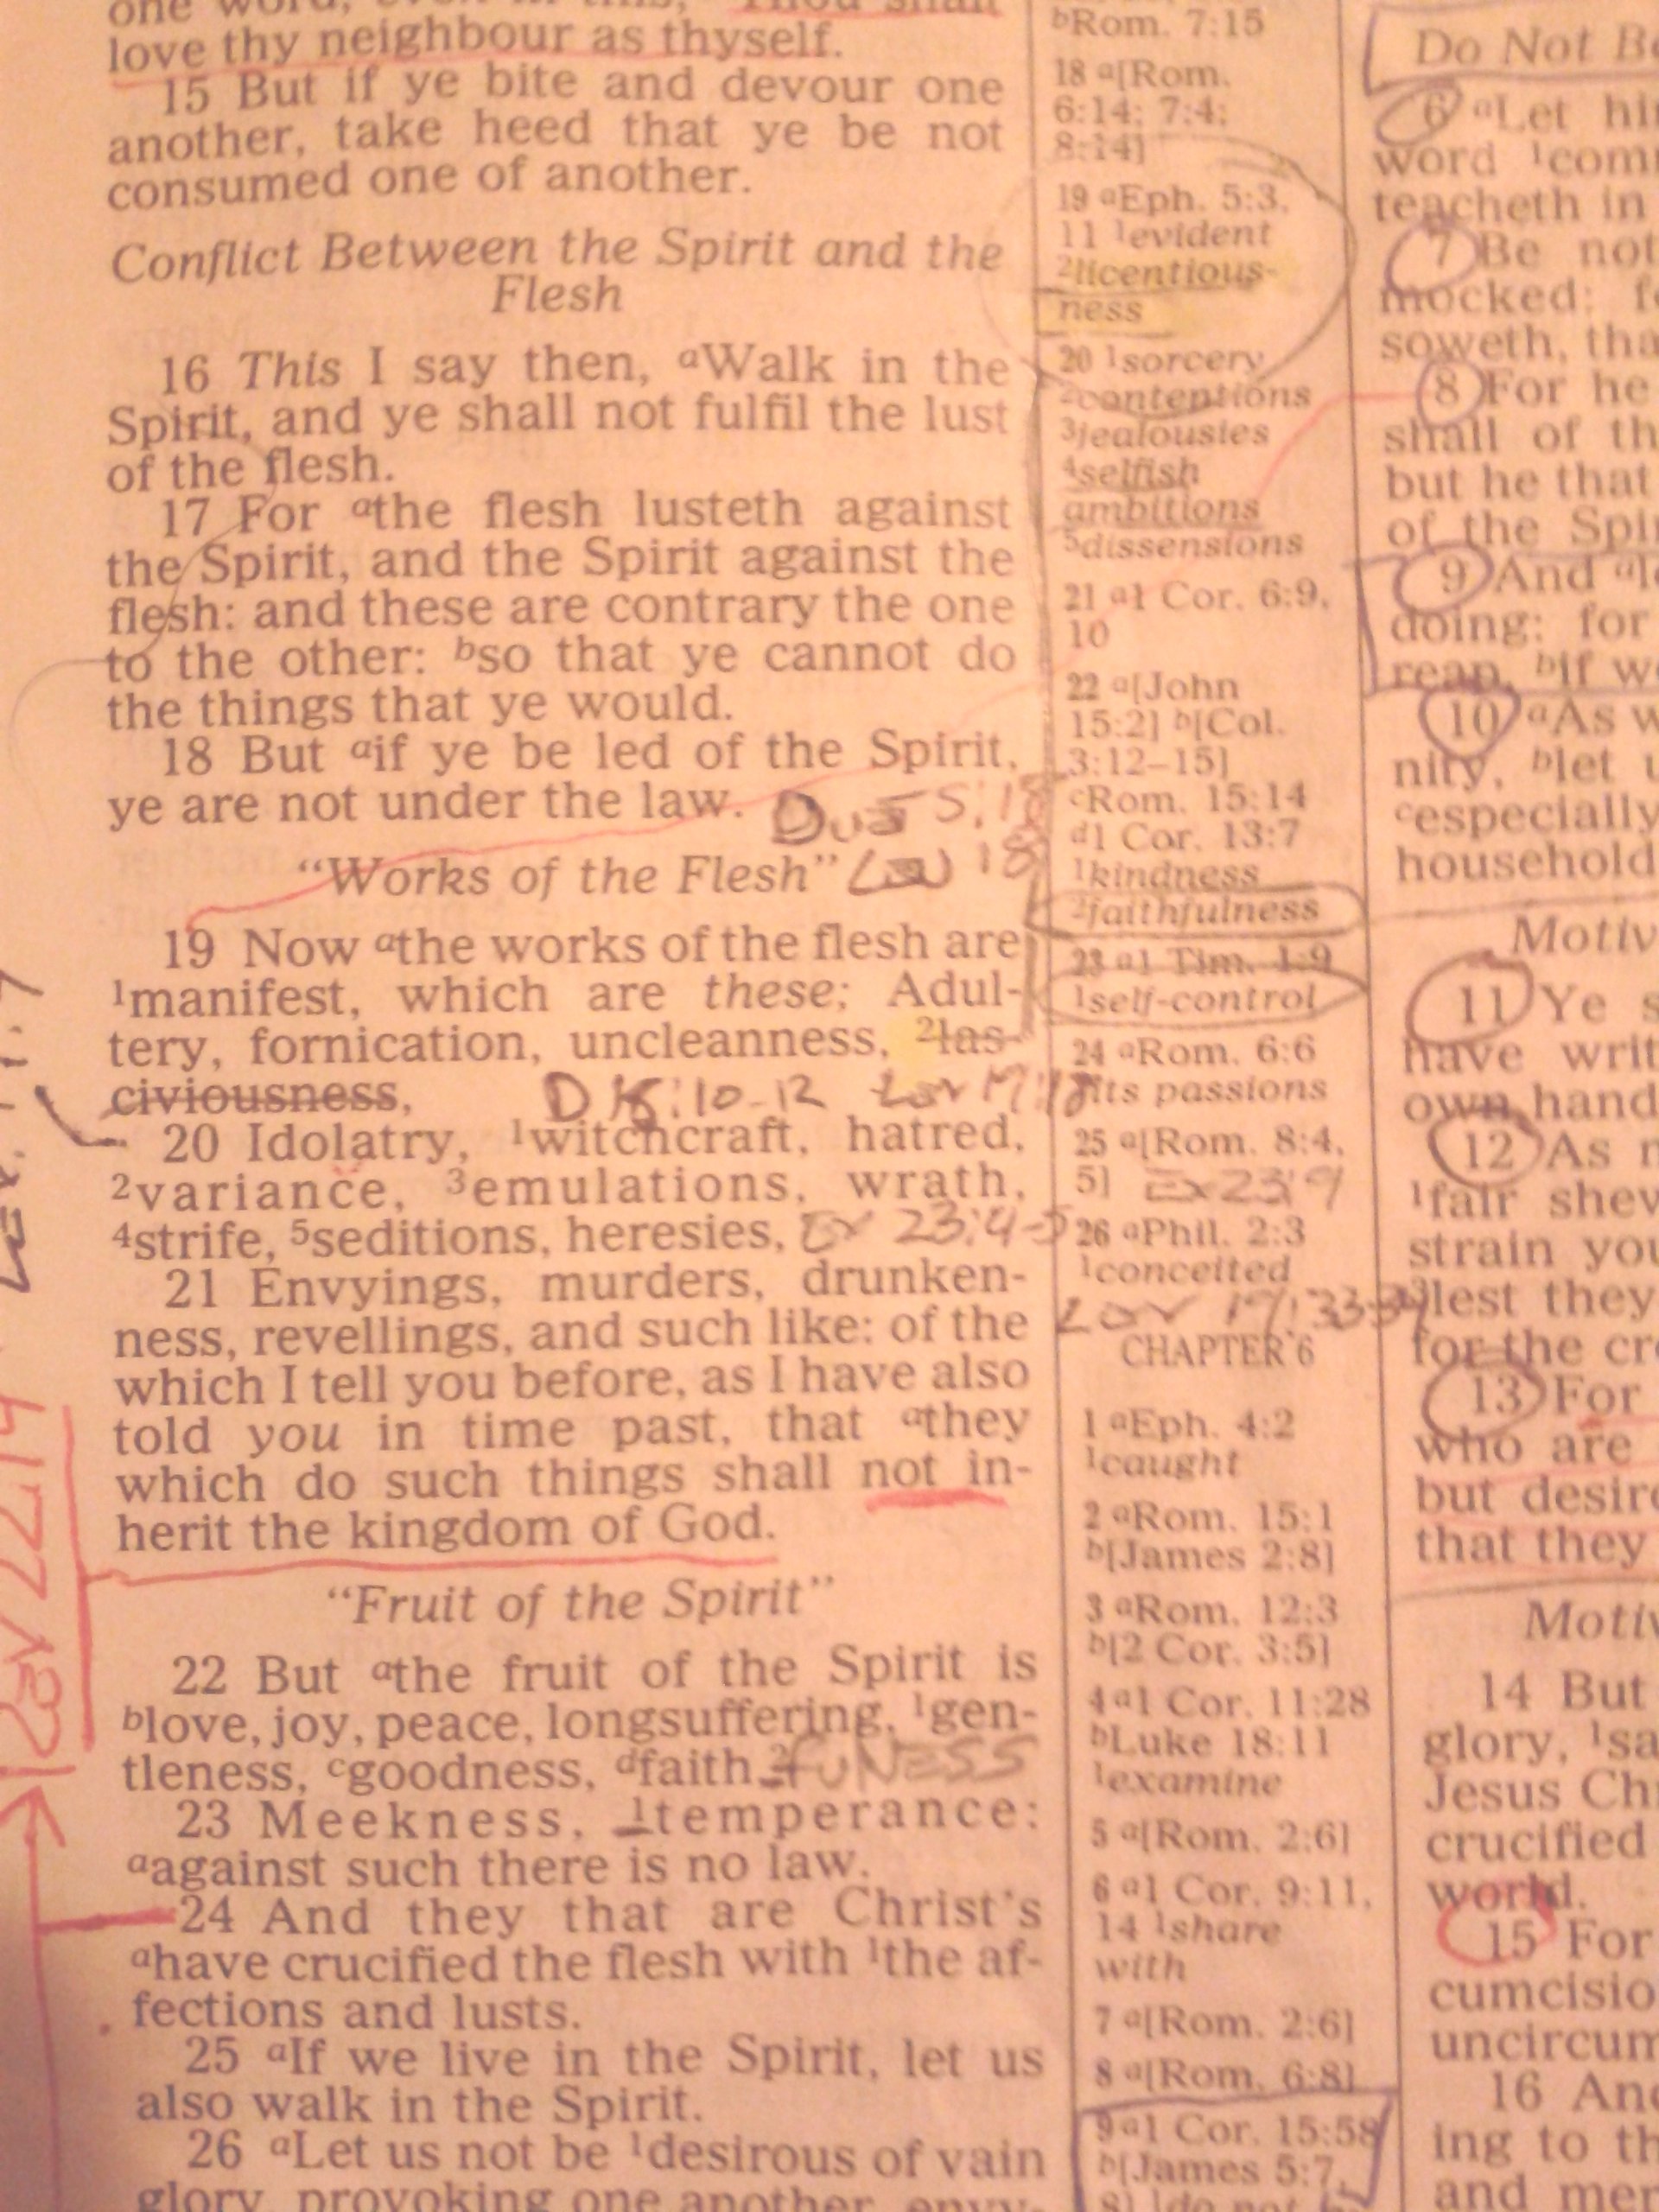 love thy neighbour as thyself.
15 But if ye bite and devour one
another, take heed that ye be not
consumed one of another.
Conflict Between the Spirit and the
Flesh
16 This I say then, aWalk in the
Spirit, and ye shall not fulfil the lust
of the flesh.
17 For athe flesh lusteth against
the Spirit, and the Spirit against the
flesh: and these are contrary the one
to the other: bso that ye cannot do
the things that ye would.
18 But aif ye be led of the Spirit,
ye are not under the law. 5:18
"Works of the Flesh" Lev 18
19 Now athe works of the flesh are
1manifest, which are these; Adul-
tery, fornication, uncleanness, 2las-
civiousness,
20 Idolatry, 1witchcraft, hatred,
2variance, 3emulations, wrath,
4strife, 5seditions, heresies, Ex 23:4-5
21 Envyings, murders, drunken-
ness, revellings, and such like: of the
which I tell you before, as I have also
told you in time past, that athey
which do such things shall not in-
herit the kingdom of God.
"Fruit of the Spirit"
22 But athe fruit of the Spirit is
blove, joy, peace, longsuffering, 1gen-
tleness, cgoodness, dfaith,2 fulNESS
23 Meekness, 1temperance:
aagainst such there is no law.
24 And they that are Christ's
ahave crucified the flesh with 1the af-
fections and lusts.
25 aIf we live in the Spirit, let us
also walk in the Spirit.
26 aLet us not be 1desirous of vain
glory, provoking one another, envy-
bRom. 7:15
18 a[Rom.
6:14; 7:4;
8:14]
19 aEph. 5:3,
11 1evident
2licentious-
ness
20 1sorcery
2contentions
3jealousies
4selfish
ambitions
5dissensions
21 a1 Cor. 6:9,
10
22 a[John
15:2] b[Col.
3:12–15]
cRom. 15:14
d1 Cor. 13:7
1kindness
2faithfulness
23 a1 Tim. 1:9
1self-control
24 aRom. 6:6
1its passions
25 a[Rom. 8:4,
5] Ex 23:9
26 aPhil. 2:3
1conceited
Lev 19:33-34
CHAPTER 6
1 aEph. 4:2
1caught
2 aRom. 15:1
b[James 2:8]
3 aRom. 12:3
b[2 Cor. 3:5]
4 a1 Cor. 11:28
bLuke 18:11
1examine
5 a[Rom. 2:6]
6 a1 Cor. 9:11,
14 1share
with
7 a[Rom. 2:6]
8 a[Rom. 6:8]
9 a1 Cor. 15:58
b[James 5:7,
8] 1do not
Do Not
6 aLet
word
teacheth in
7 Be not
mocked:
soweth,
8 For he
shall of
but he that
of the
9 And
doing: for
reap, bif
10 aAs
nity, blet
cespecially
household
11 Ye
have
own hand
12 As
1fair
strain
lest they
for the
13 For
who are
but
that they
14 But
glory,
Jesus
crucified
world.
15 For
16
ing to
and
Rev 22:14